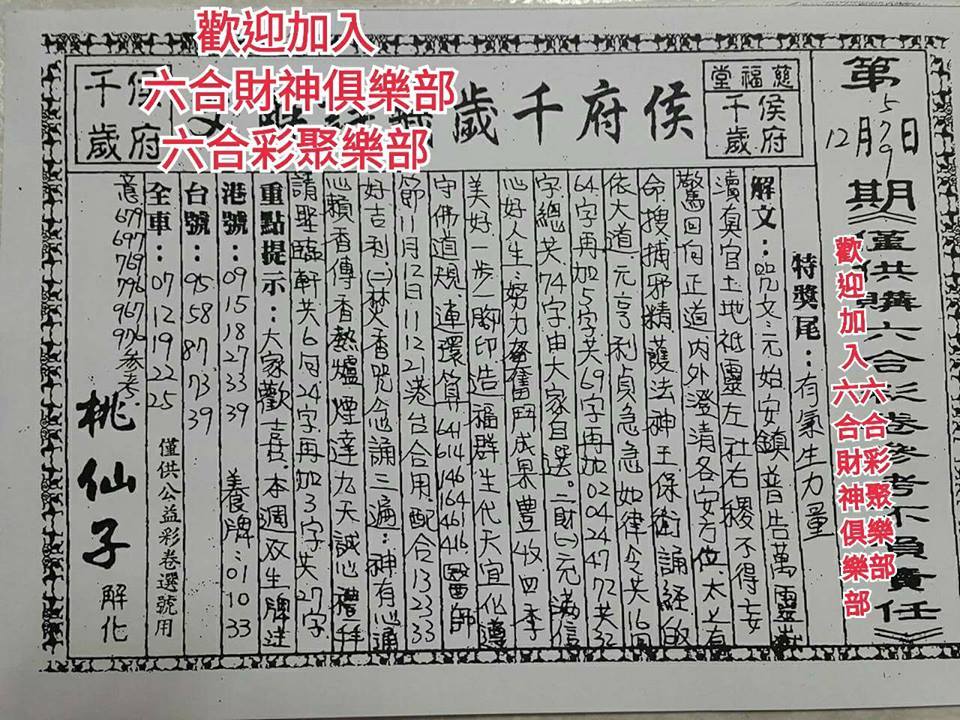 歡迎加入
六合財神俱樂部
六合彩聚樂部
慈福堂
侯府
千歲
侯府千歲
侯府
千歲
第
579
12月9日
期《僅供購六合彩卷參考不負責任》
歡迎加入
六合彩聚樂部
六合財神俱樂部
特獎尾：有氣生力量
解文：咒文：元始安鎮普告萬靈嶽
瀆真官土地祗靈左社右稷不得妄
驚回向正道內外澄清各安方位太上有
命搜捕邪精護法神王保衛誦經皈
依大道元亨利貞急急如律令共16句
64字再加5字共69字再加02 04 24 47 72共32
字總共74字由大家自選。二、財元滿信
心好人生努力奮鬥成果豐收四季
美好一步一腳印造福群生代天宣化遵
守佛道規連環算64 614 146 164 461 416醫師
節11月12日11 12 21港台合用配合13 23 33
好吉利(三)焚香咒念誦三遍：神有心通
心願香傳香熱爐煙達九天誠心禮拜
請聖臨軒共6句24字再加3字共27字
重點提示：大家歡喜。本週双生牌送
港號：09 15 18 27 33 39 養牌：01 10 33
台號：95 58 87 73 39
全車：07 12 19 22 25
僅供公益彩卷選號用
意679 697 769 796 967 976參考
桃仙子解化